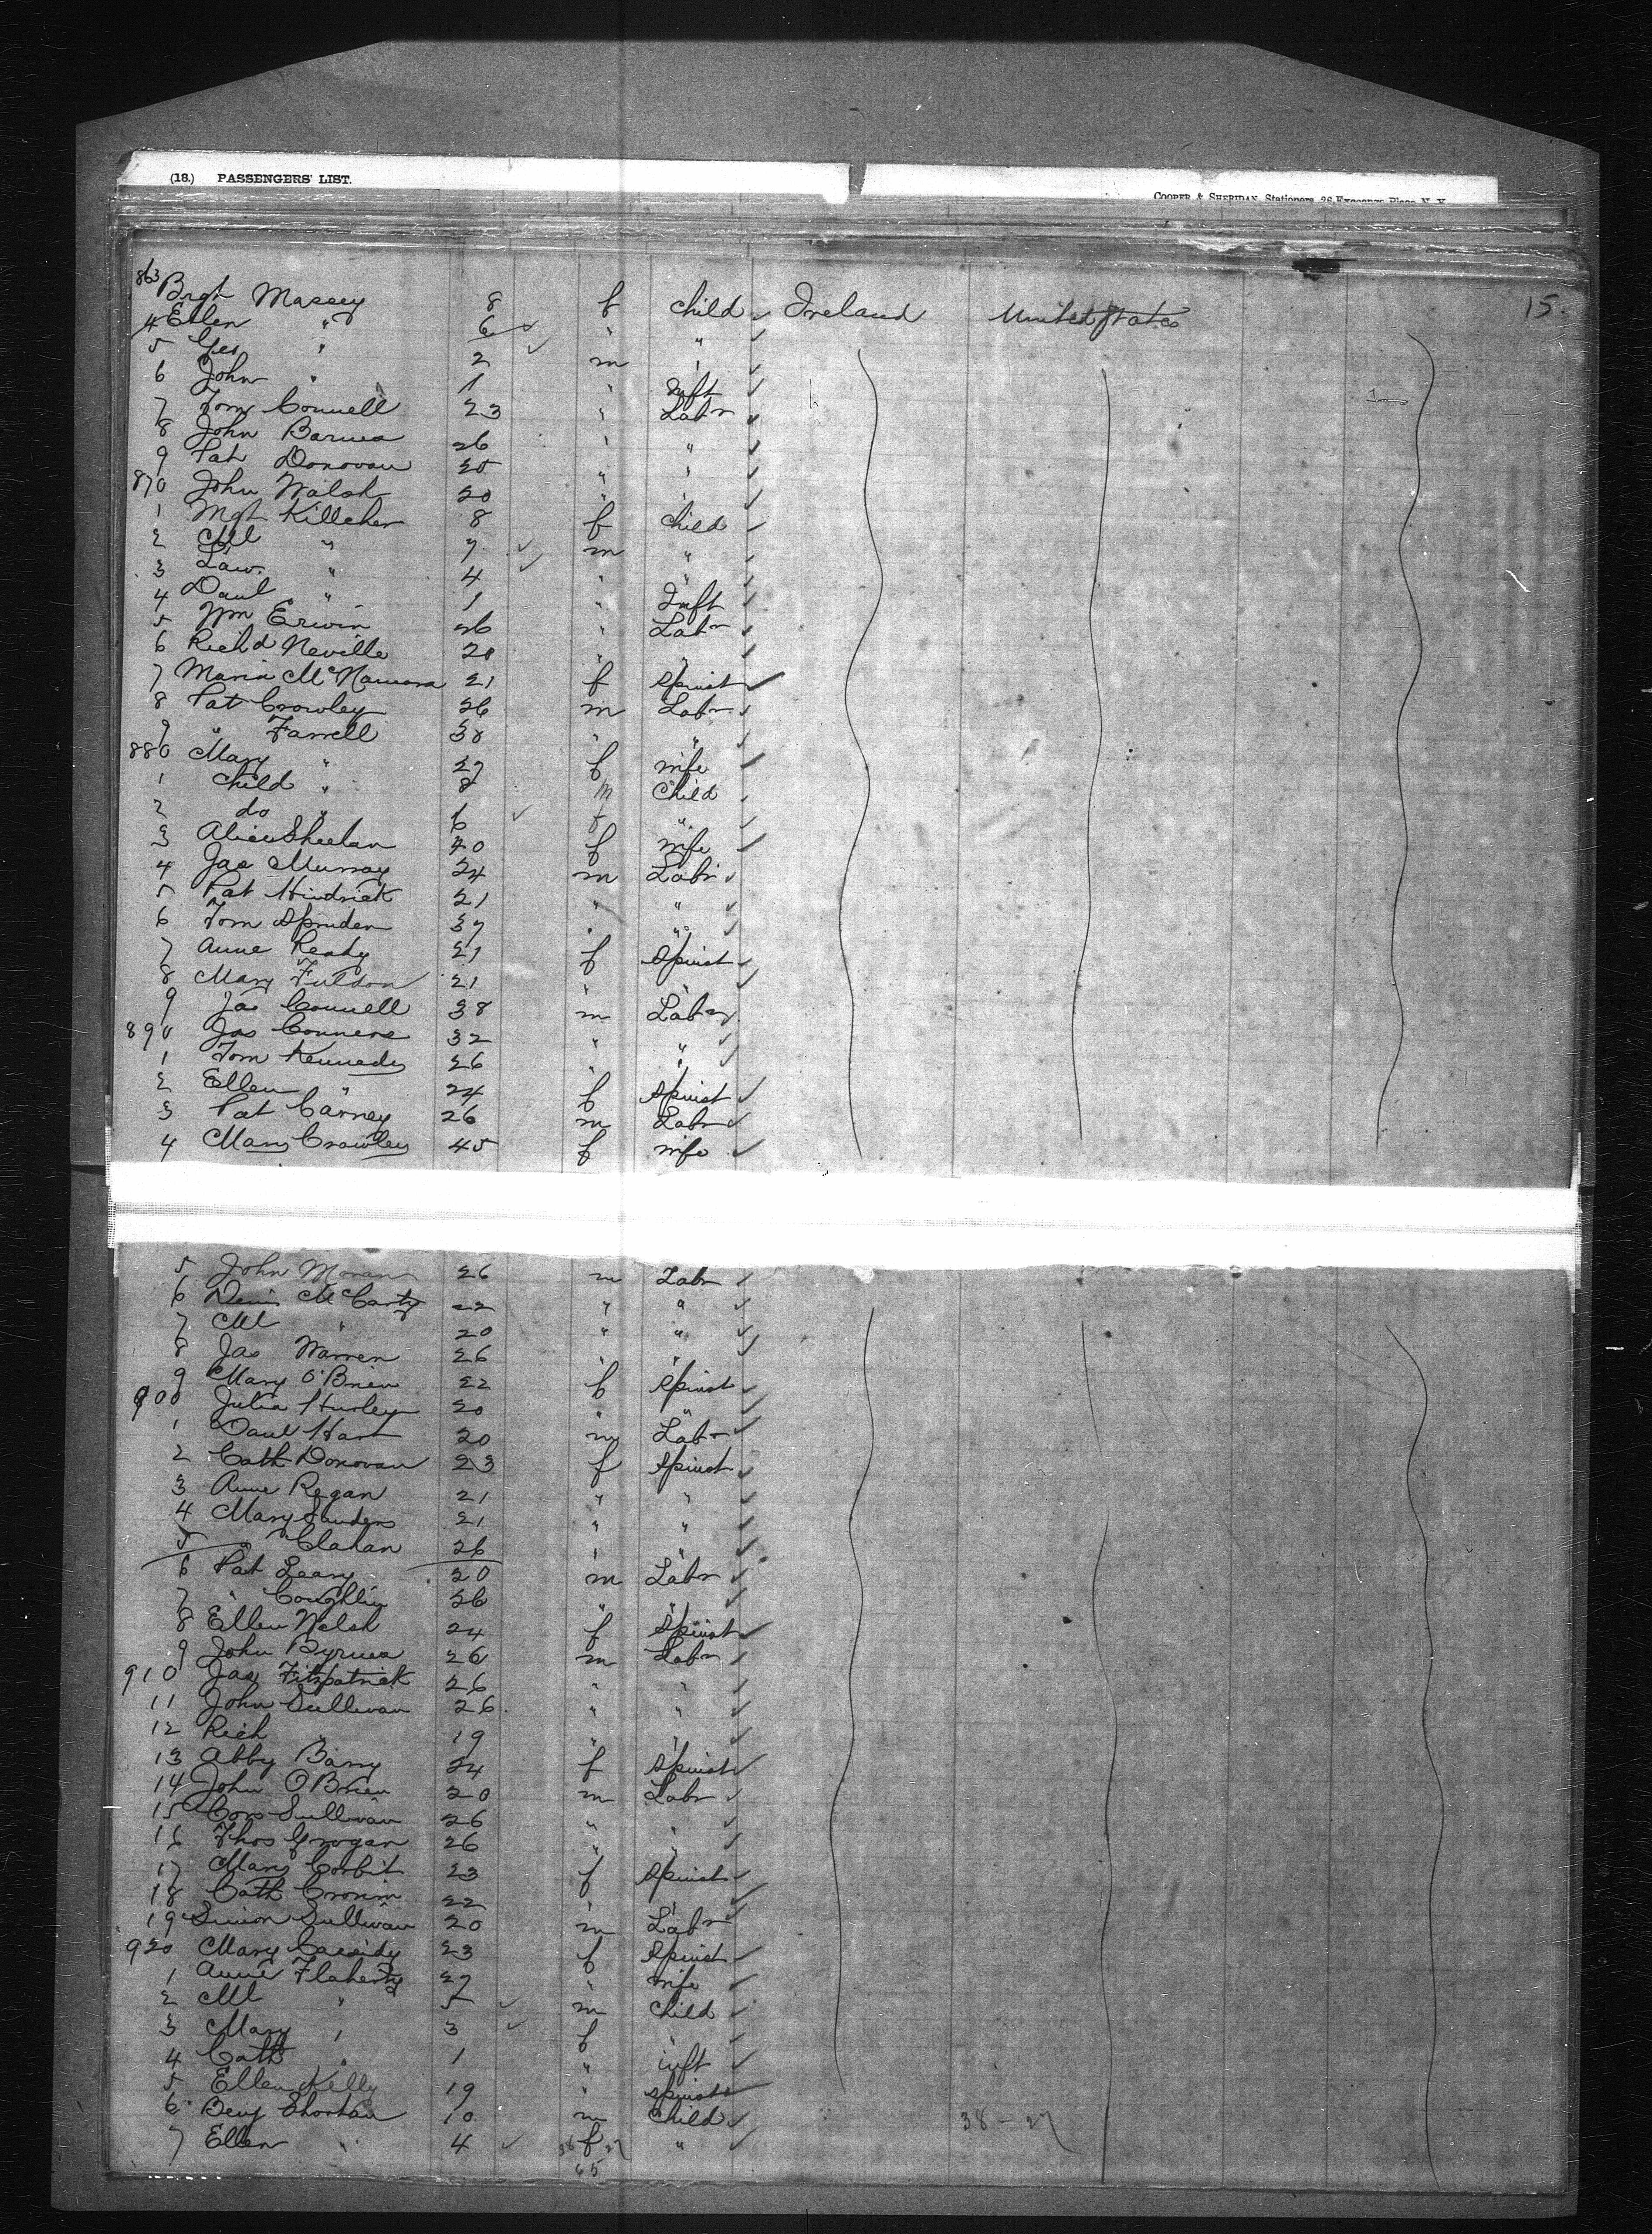 (18.) PASSENGERS' LIST.
COOPER & SHERIDAN, Stationers, 26 Exchange Place, N. Y.
15.
863 Brgt Massey 8 f Child Ireland United States
4 Ellen " 6 " "
5 Geo " 2 m "
6 John " 1 " Inft
7 Tom Connell 23 " Labr
8 John Barnes 26 " "
9 Pat Donovan 20 " "
870 John Walsh 20 " "
1 Mgt Killeher 8 f Child
2 Ml " 7 m "
3 Law. " 4 " "
4 Danl " 1 " Inft
5 Wm Erwin 26 " Labr
6 Richd Neville 20 " "
7 Maria McNamara 21 f Spinst
8 Pat Crowley 26 m Labr
9 " Farrell 30 " "
880 Mary " 27 f wife
1 Child " 8 m Child
2 do " 6 f "
3 Alice Sheehan 40 f wife
4 Jas Murray 24 m Labr
5 Pat Hindrick 21 " "
6 Tom Spruden 37 " "
7 Anne Ready 21 f Spinst
8 Mary Fulton 21 " "
9 Jas Connell 38 m Labr
890 Jas Connors 32 " "
1 Tom Kennedy 26 " "
2 Ellen " 24 f Spinst
3 Pat Carney 26 m Labr
4 Mary Crowley 45 f wife
5 John Moran 26 m Labr
6 Denis McCarty 22 " "
7 Ml " 20 " "
8 Jas Warren 26 " "
9 Mary O'Brien 22 f Spinst
900 Julia Hurley 20 " "
1 Danl Hart 20 m Labr
2 Cath Donovan 23 f Spinst
3 Anne Regan 21 " "
4 Mary Sanders 21 " "
5 " Clahan 26 " "
6 Pat Leary 20 m Labr
7 " Coughlin 26 " "
8 Ellen Walsh 24 f Spinst
9 John Byrnes 26 m Labr
910 Jas Fitzpatrick 26 " "
11 John Sullivan 26 " "
12 Rich " 19 " "
13 Abby Barry 24 f Spinst
14 John O'Brien 20 m Labr
15 Cors Sullivan 26 " "
16 Thos Grogan 26 " "
17 Mary Corbit 23 f Spinst
18 Cath Cronin 22 " "
19 Simon Sullivan 20 m Labr
920 Mary Cassidy 23 f Spinst
1 Anne Flaherty 27 " wife
2 Ml " 5 m Child
3 Mary " 3 f
4 Cath " 1 " inft
5 Ellen Kelly 19 " spinst
6 Benj Shorhan 10 m Child
7 Ellen " 4 f "
38 - 27
38 27
65